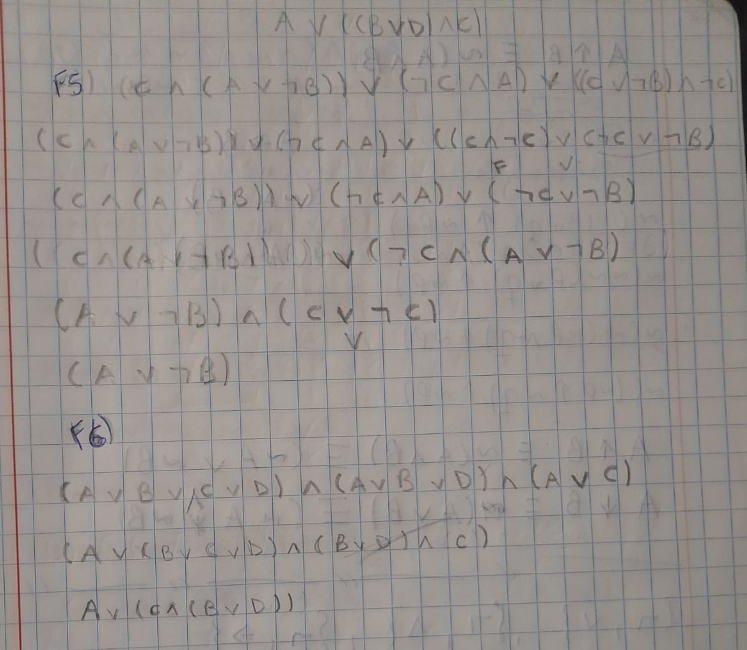 A ∨ ((B∨D)∧C)
F5) (C ∧ (A ∨ ¬B)) ∨ (¬C ∧ A) ∨ ((C ∨ ¬B) ∧ ¬C)
(C ∧ (A ∨ ¬B)) ∨ (¬C ∧ A) ∨ ((C ∧ ¬C) ∨ (¬C ∨ ¬B)
F V
(C ∧ (A ∨ ¬B)) ∨ (¬C ∧ A) ∨ (¬C ∨ ¬B)
(C ∧ (A ∨ ¬B)) ∨ (¬C ∧ (A ∨ ¬B)
(A ∨ ¬B) ∧ (C ∨ ¬C)
V
(A ∨ ¬B)
F6)
(A ∨ B ∨ C ∨ D) ∧ (A ∨ B ∨ D) ∧ (A ∨ C)
(A ∨ (B ∨ C ∨ D) ∧ (B ∨ D) ∧ C)
A ∨ (C ∧ (B ∨ D))